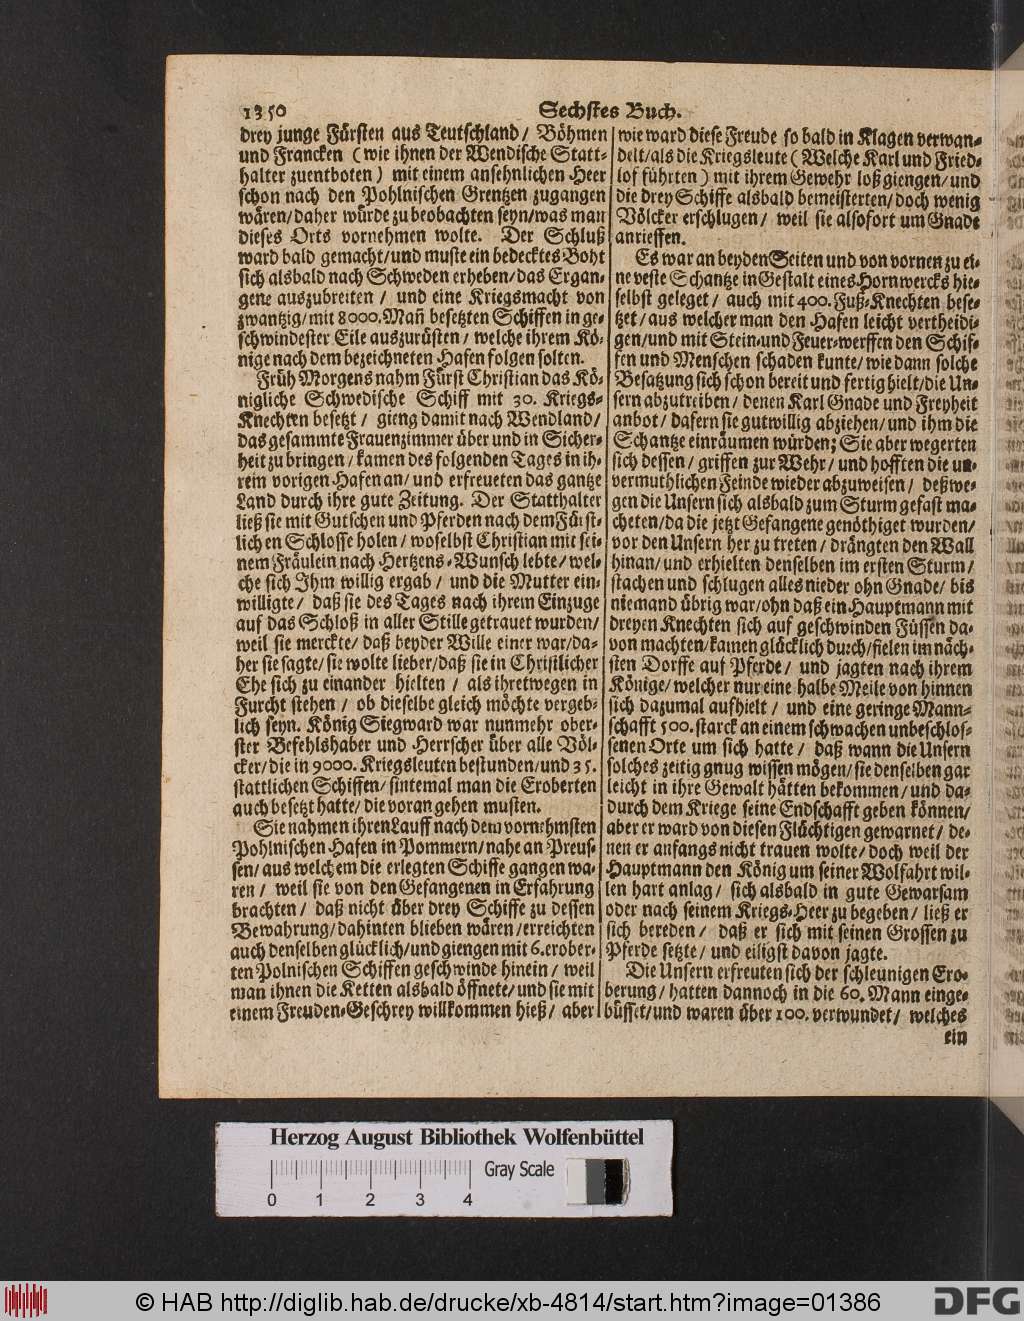 1350
Sechstes Buch.
drey junge Fürsten aus Teutschland/ Böhmen
und Francken (wie ihnen der Wendische Statt-
halter zuentboten) mit einem ansehnlichen Heer
schon nach den Pohlnischen Grentzen zugangen
wären/ daher würde zu beobachten seyn/ was man
dieses Orts vornehmen wolte. Der Schluß
ward bald gemacht/ und muste ein bedecktes Boht
sich alsbald nach Schweden erheben/ das Ergan-
gene auszubreiten/ und eine Kriegsmacht von
zwantzig/ mit 8000. Mañ besetzten Schiffen in ge-
schwindester Eile auszurüsten/ welche ihrem Kö-
nige nach dem bezeichneten Hafen folgen solten.
Früh Morgens nahm Fürst Christian das Kö-
nigliche Schwedische Schiff mit 30. Kriegs-
Knechten besetzt/ gieng damit nach Wendland/
das gesammte Frauenzimmer über und in Sicher-
heit zu bringen/ kamen des folgenden Tages in ih-
rem vorigen Hafen an/ und erfreueten das gantze
Land durch ihre gute Zeitung. Der Statthalter
ließ sie mit Gutschen und Pferden nach dem Fürst-
lichen Schlosse holen/ woselbst Christian mit sei-
nem Fräulein nach Hertzens-Wunsch lebte/ wel-
che sich Ihm willig ergab/ und die Mutter ein-
willigte/ daß sie des Tages nach ihrem Einzuge
auf das Schloß in aller Stille getrauet wurden/
weil sie merckte/ daß beyder Wille einer war/ da-
her sie sagte/ sie wolte lieber/ daß sie in Christlicher
Ehe sich zu einander hielten/ als ihretwegen in
Furcht stehen/ ob dieselbe gleich möchte vergeb-
lich seyn. König Siegward war nunmehr ober-
ster Befehlshaber und Herrscher über alle Völ-
cker/ die in 9000. Kriegsleuten bestunden/ und 35.
stattlichen Schiffen/ sintemal man die Eroberten
auch besetzt hatte/ die voran gehen musten.
Sie nahmen ihren Lauff nach dem vornehmsten
Pohlnischen Hafen in Pommern/ nahe an Preus-
sen/ aus welchem die erlegten Schiffe gangen wa-
ren/ weil sie von den Gefangenen in Erfahrung
brachten/ daß nicht über drey Schiffe zu dessen
Bewahrung/ dahinten blieben wären/ erreichten
auch denselben glücklich/ und giengen mit 6. erober-
ten Polnischen Schiffen geschwinde hinein/ weil
man ihnen die Ketten alsbald öffnete/ und sie mit
einem Freuden-Geschrey willkommen hieß/ aber
wie ward diese Freude so bald in Klagen verwan-
delt/ als die Kriegsleute (Welche Karl und Fried-
lof führten) mit ihrem Gewehr loß giengen/ und
die drey Schiffe alsbald bemeisterten/ doch wenig
Völcker erschlugen/ weil sie alsofort um Gnade
anrieffen.
Es war an beyden Seiten und von vornen zu ei-
ne veste Schantze in Gestalt eines Hornwercks hie-
selbst geleget/ auch mit 400. Fuß-Knechten bese-
tzet/ aus welcher man den Hafen leicht vertheidi-
gen/ und mit Stein-und Feuer-werffen den Schif-
fen und Menschen schaden kunte/ wie dann solche
Besatzung sich schon bereit und fertig hielt/ die Un-
sern abzutreiben/ denen Karl Gnade und Freyheit
anbot/ dafern sie gutwillig abziehen/ und ihm die
Schantze einräumen würden; Sie aber wegerten
sich dessen/ griffen zur Wehr/ und hofften die un-
vermuthlichen Feinde wieder abzuweisen/ deßwe-
gen die Unsern sich alsbald zum Sturm gefast ma-
cheten/ da die jetzt Gefangene genöthiget wurden/
vor den Unsern her zu treten/ drängten den Wall
hinan/ und erhielten denselben im ersten Sturm/
stachen und schlugen alles nieder ohn Gnade/ bis
niemand übrig war/ ohn daß ein Hauptmann mit
dreyen Knechten sich auf geschwinden Füssen da-
von machten/ kamen glücklich durch/ fielen im näch-
sten Dorffe auf Pferde/ und jagten nach ihrem
Könige/ welcher nur eine halbe Meile von hinnen
sich dazumal aufhielt/ und eine geringe Mann-
schafft 500. starck an einem schwachen unbeschlos-
senen Orte um sich hatte/ daß wann die Unsern
solches zeitig gnug wissen mögen/ sie denselben gar
leicht in ihre Gewalt hätten bekommen/ und da-
durch dem Kriege seine Endschafft geben können/
aber er ward von diesen Flüchtigen gewarnet/ de-
nen er anfangs nicht trauen wolte/ doch weil der
Hauptmann den König um seiner Wolfahrt wil-
len hart anlag/ sich alsbald in gute Gewarsam
oder nach seinem Kriegs-Heer zu begeben/ ließ er
sich bereden/ daß er sich mit seinen Grossen zu
Pferde setzte/ und eiligst davon jagte.
Die Unsern erfreuten sich der schleunigen Ero-
berung/ hatten dannoch in die 60. Mann einge-
büsset/ und waren über 100. verwundet/ welches
ein
Herzog August Bibliothek Wolfenbüttel
Gray Scale
0 1 2 3 4
© HAB http://diglib.hab.de/drucke/xb-4814/start.htm?image=01386
DFG